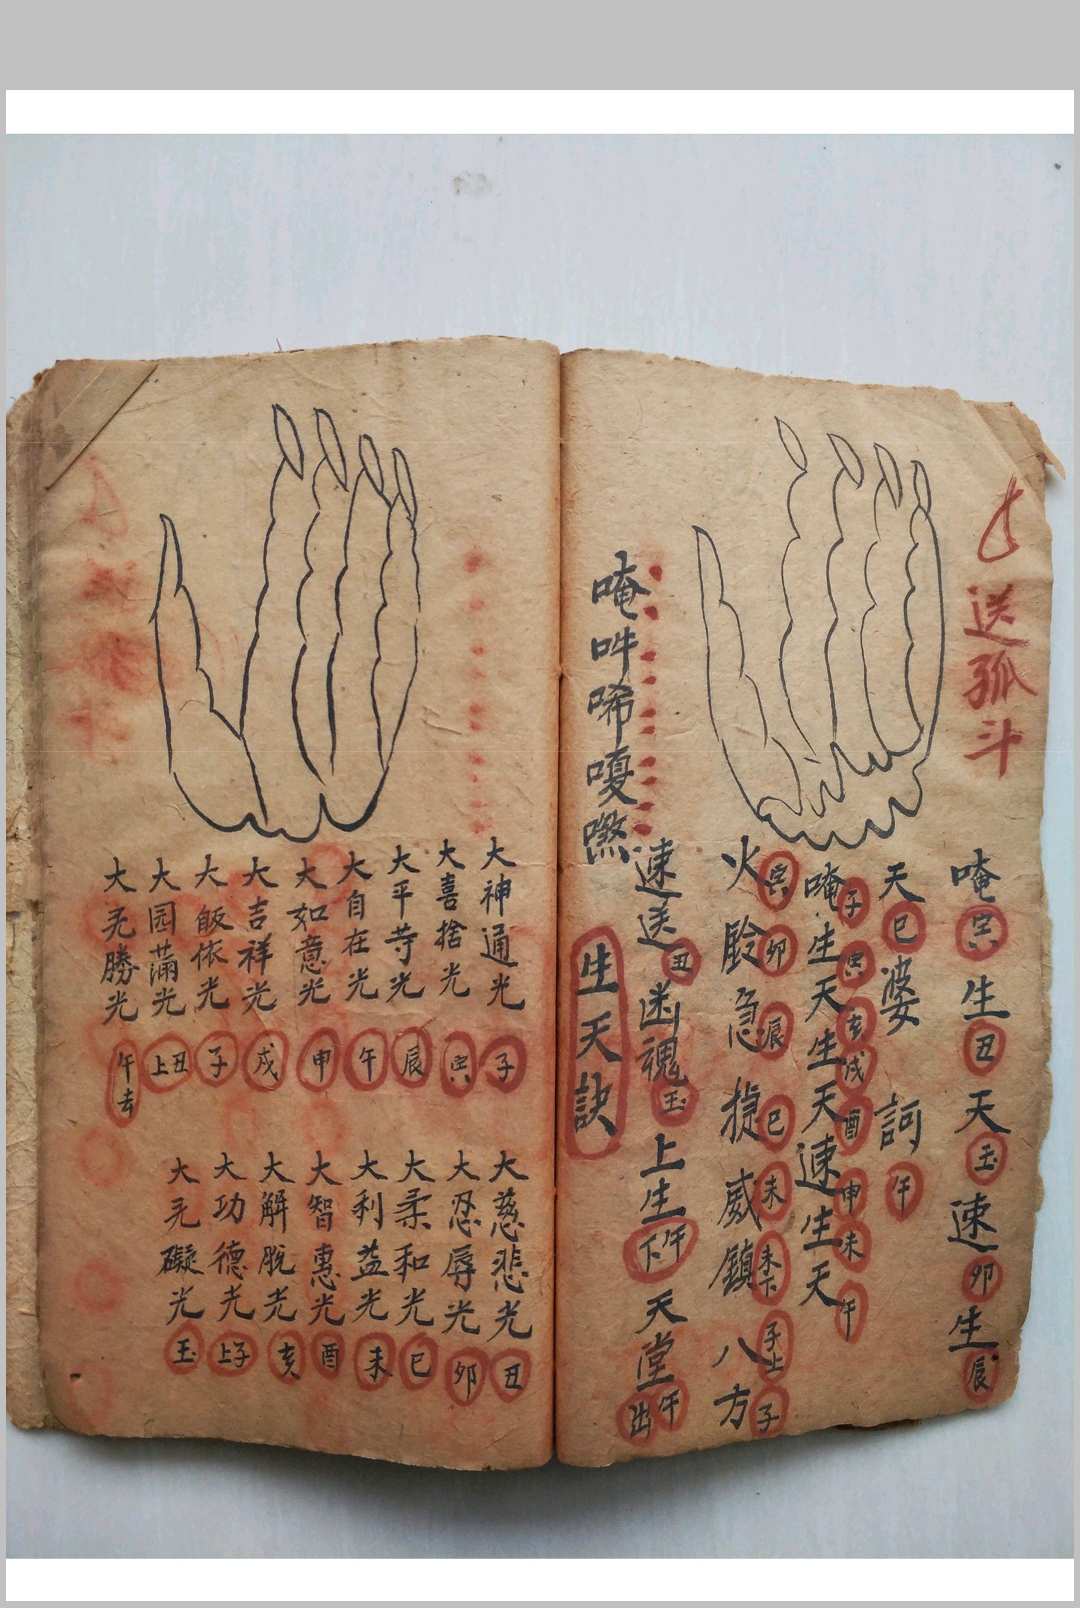 送孤斗
唵寅生丑天玉速卯生辰
天巳婆訶午
唵生天生天速生天
子寅亥戌酉申未午
火鈴急捷威鎮八方
寅卯辰巳未未下子上子
速送丑幽魂玉上生午下天堂午出
唵吽唏嗄
生天訣
大神通光子
大慈悲光丑
大喜捨光寅
大忍辱光卯
大平等光辰
大柔和光巳
大自在光午
大利益光未
大如意光申
大智惠光酉
大吉祥光戌
大解脫光亥
大皈依光子
大功德光子上
大园滿光丑上
大旡礙光玉
大旡勝光午去